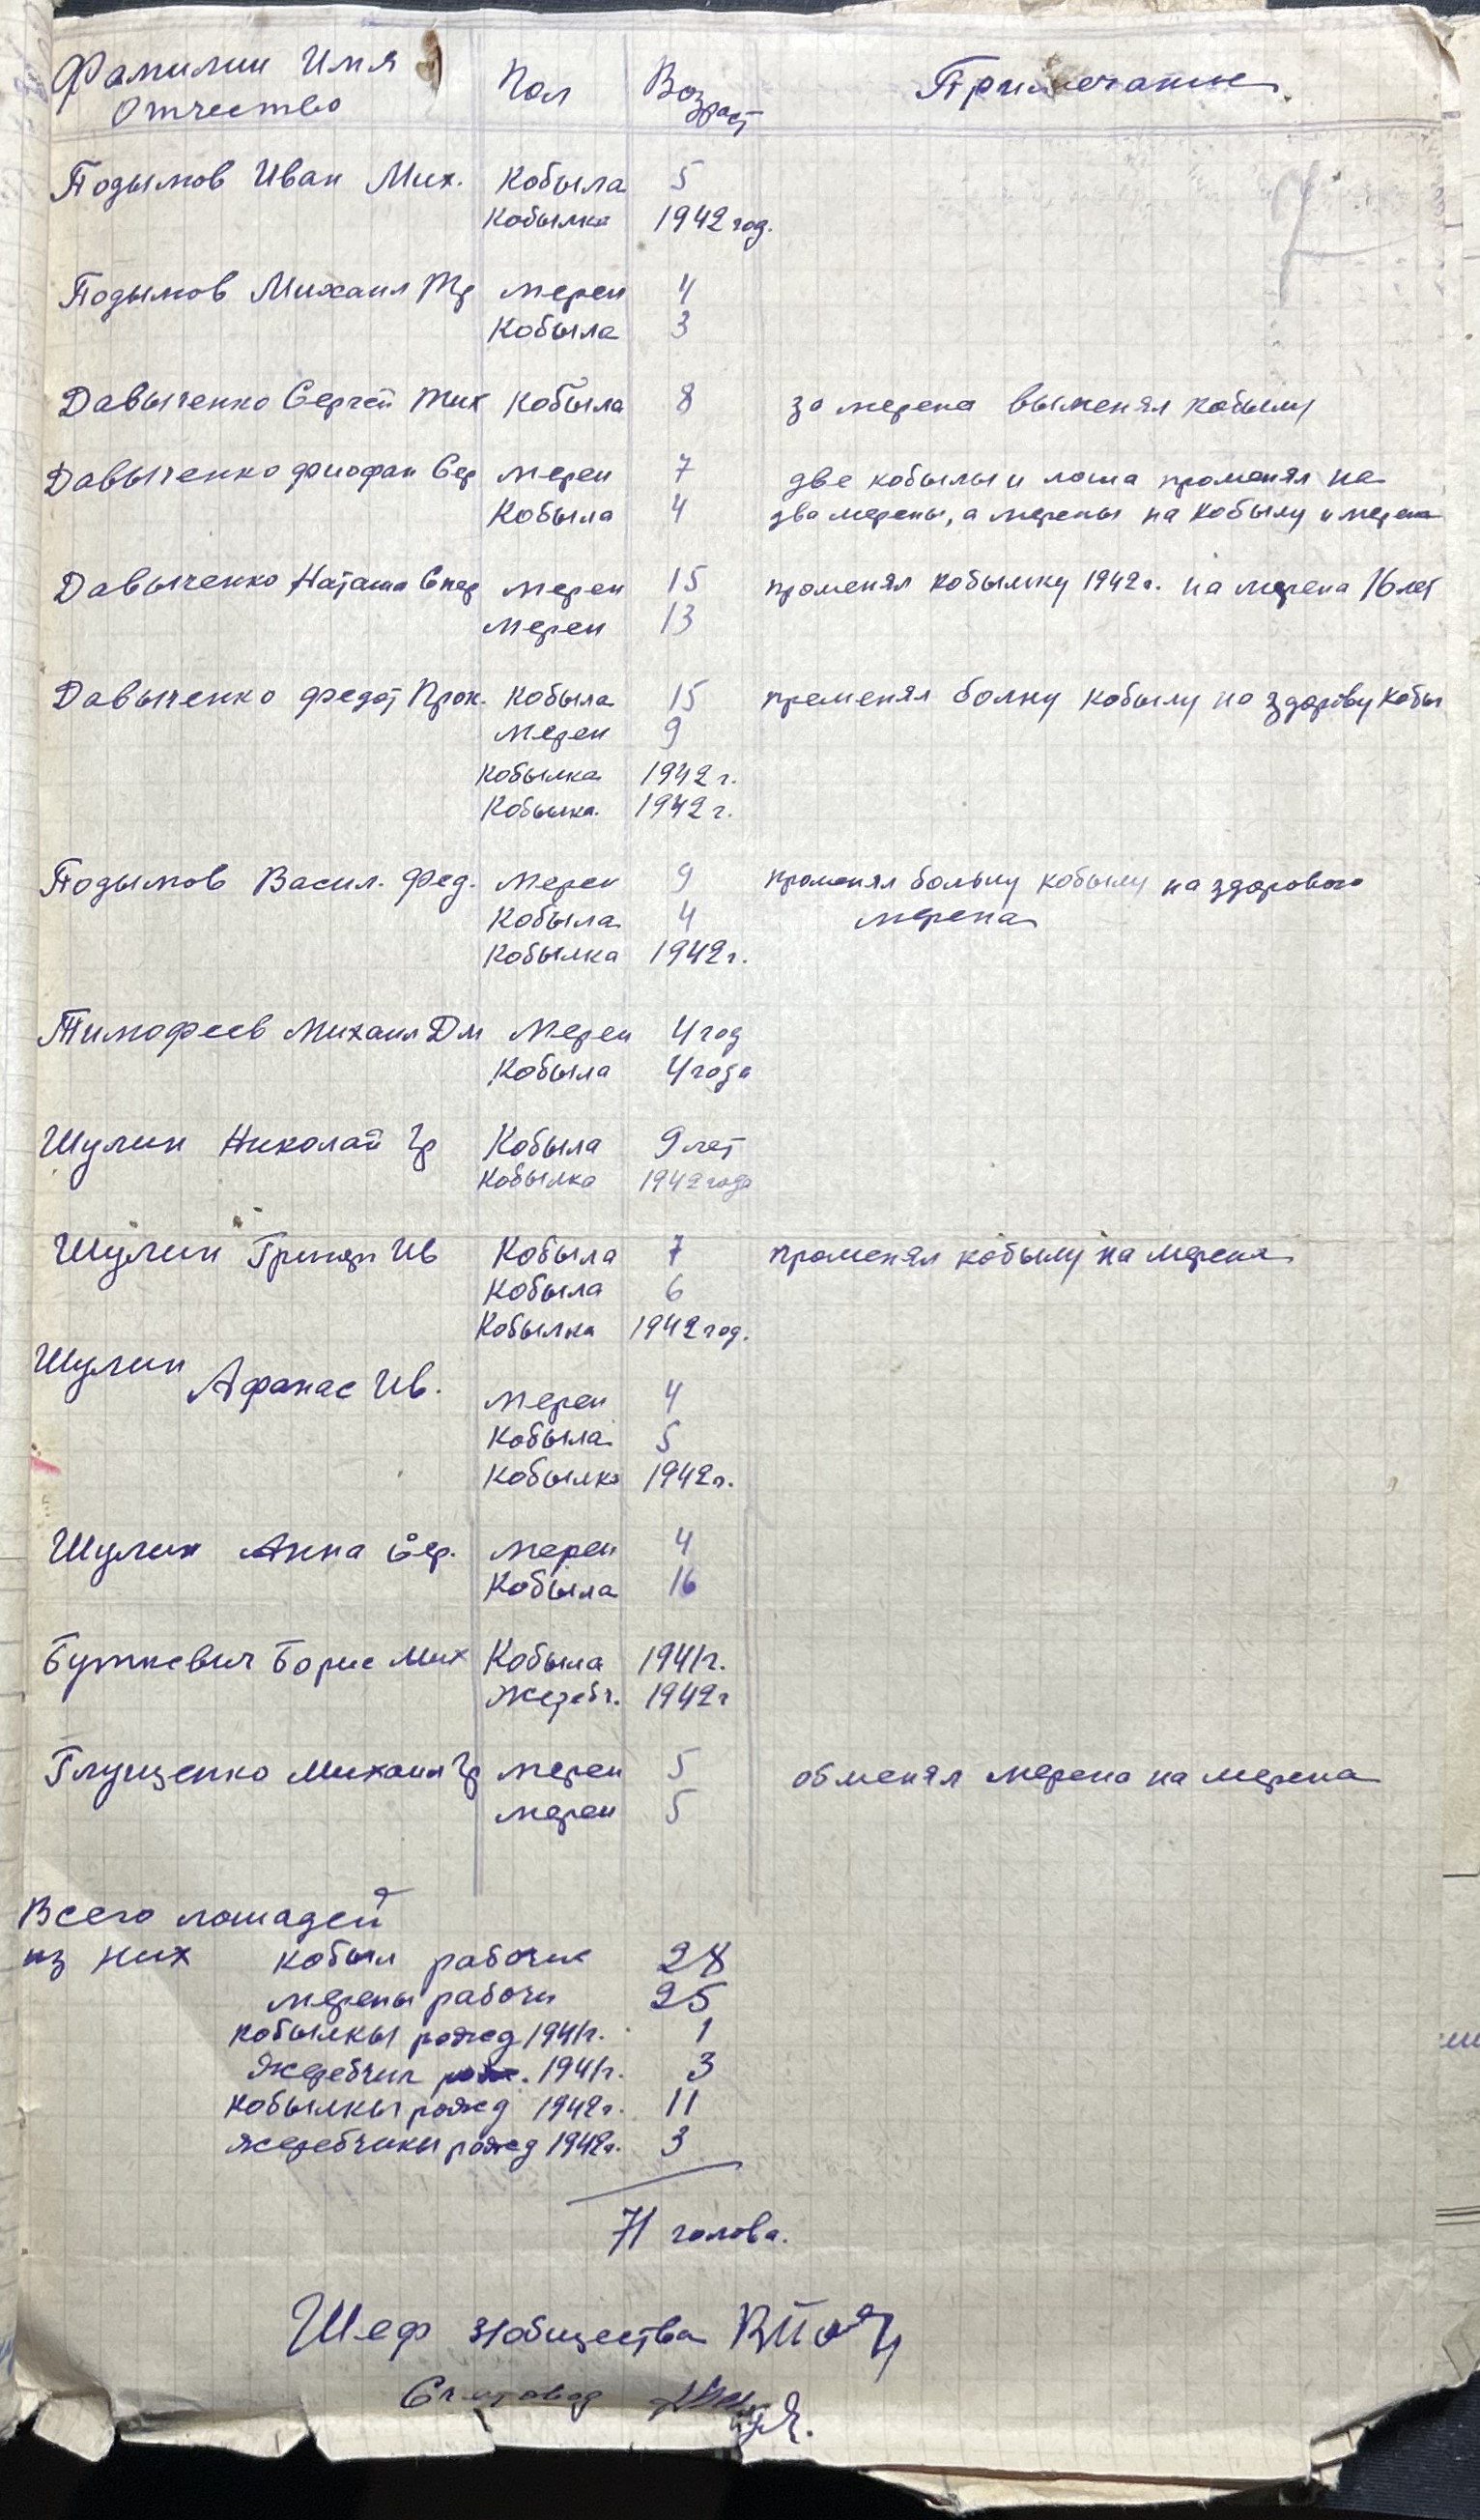 Фамилии Имя Отчество Пол Возраст Примечание
Подымов Иван Мих. Кобыла 5
Кобылка 1942 год.
Подымов Михаил Тр мерен 4
Кобыла 3
Давыченко Сергей Тих Кобыла 8 за мерена выменял кобылу
Давыченко Фиофан Сер мерен 7 две кобылы и лоша променял на
Кобыла 4 два мерены, а мерены на кобылу и мерена
Давыченко Наташа мерен 15 променял кобылку 1942 г. на мерена 16 лет
мерен 13
Давыченко Федот Прок. Кобыла 15 пременял болну кобылу на здорову кобы
мерен 9
Кобылка 1942 г.
Кобылка 1942 г.
Подымов Васил. Фед. мерен 9 променял больну кобылу на здорового
Кобыла 4 мерена
Кобылка 1942 г.
Тимофеев Михаил Дм мерен 4 год
Кобыла 4 года
Шулин Николай Гр Кобыла 9 лет
Кобылка 1942 года
Шулин Ив Кобыла 7 променял кобылу на мерена
Кобыла 6
Кобылка 1942 год.
Шулин Афанас Ив. мерен 4
Кобыла 5
Кобылка 1942 г.
Шулин Анна Сер. мерен 4
Кобыла 16
Буткевич Борис Мих Кобыла 1941 г.
Жеребч. 1942 г
Глущенко Михаил Гр мерен 5 обменял мерена на мерена
мерен 5
Всего лошадей
из них кобыл рабочие 28
мерены рабочи 25
кобылкы рожд 1941 г. 1
Жеребчик рож. 1941 г. 3
кобылкы рожд 1942 г. 11
жеребчикы рожд 1942 г. 3
71 голова.
Шеф з/общества
Счетовод